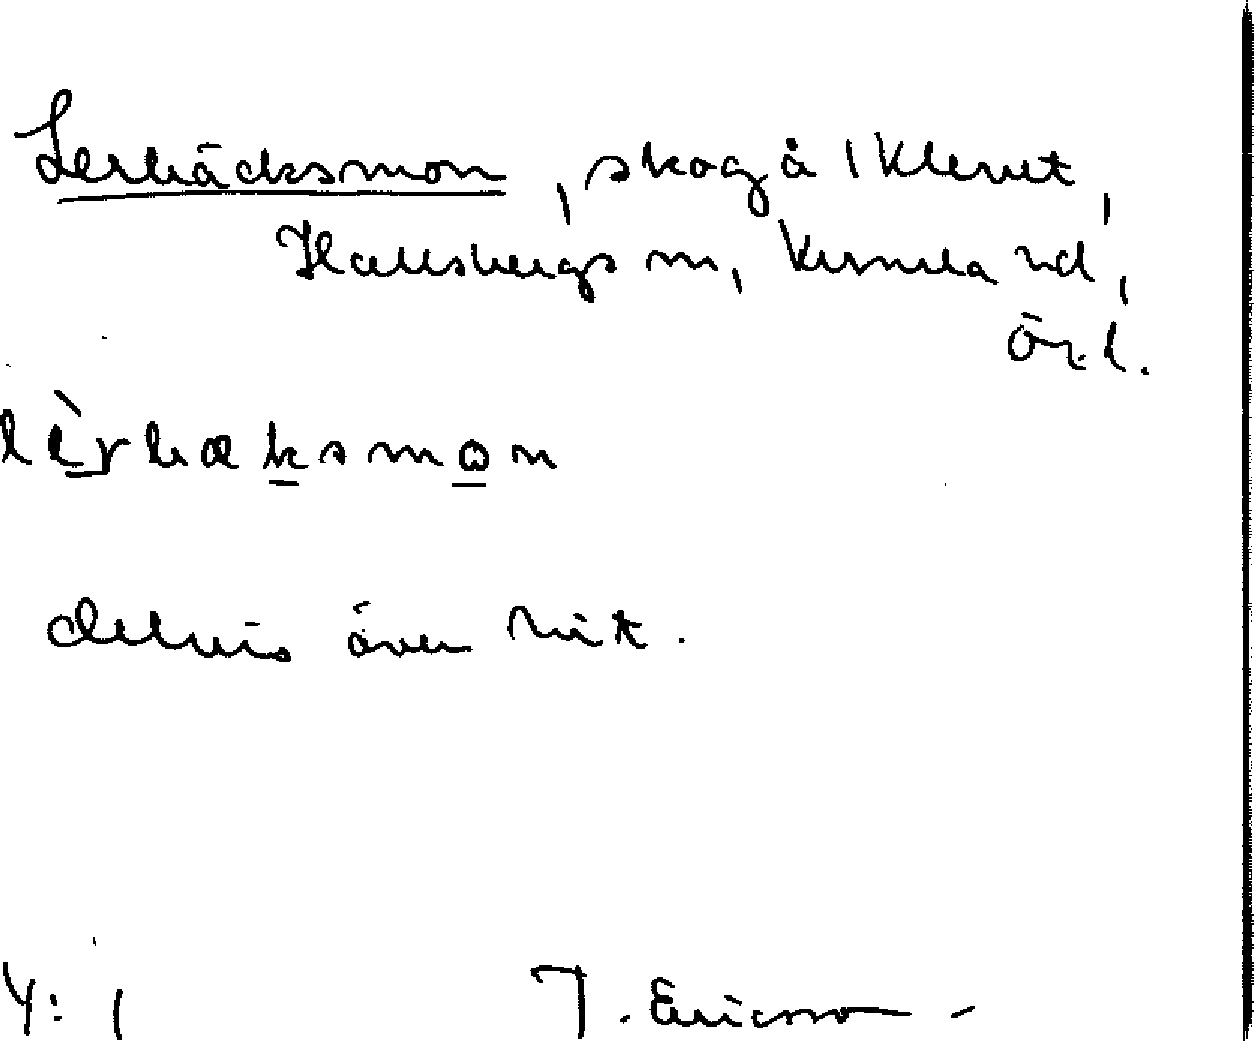 Lerbäcksmon, skog å 1 Klevet,
Hallsbergs sn, Kumla hd,
Ör. l.
lèrbæksmon
delvis över hit.
4: 1 J. Ericsson -